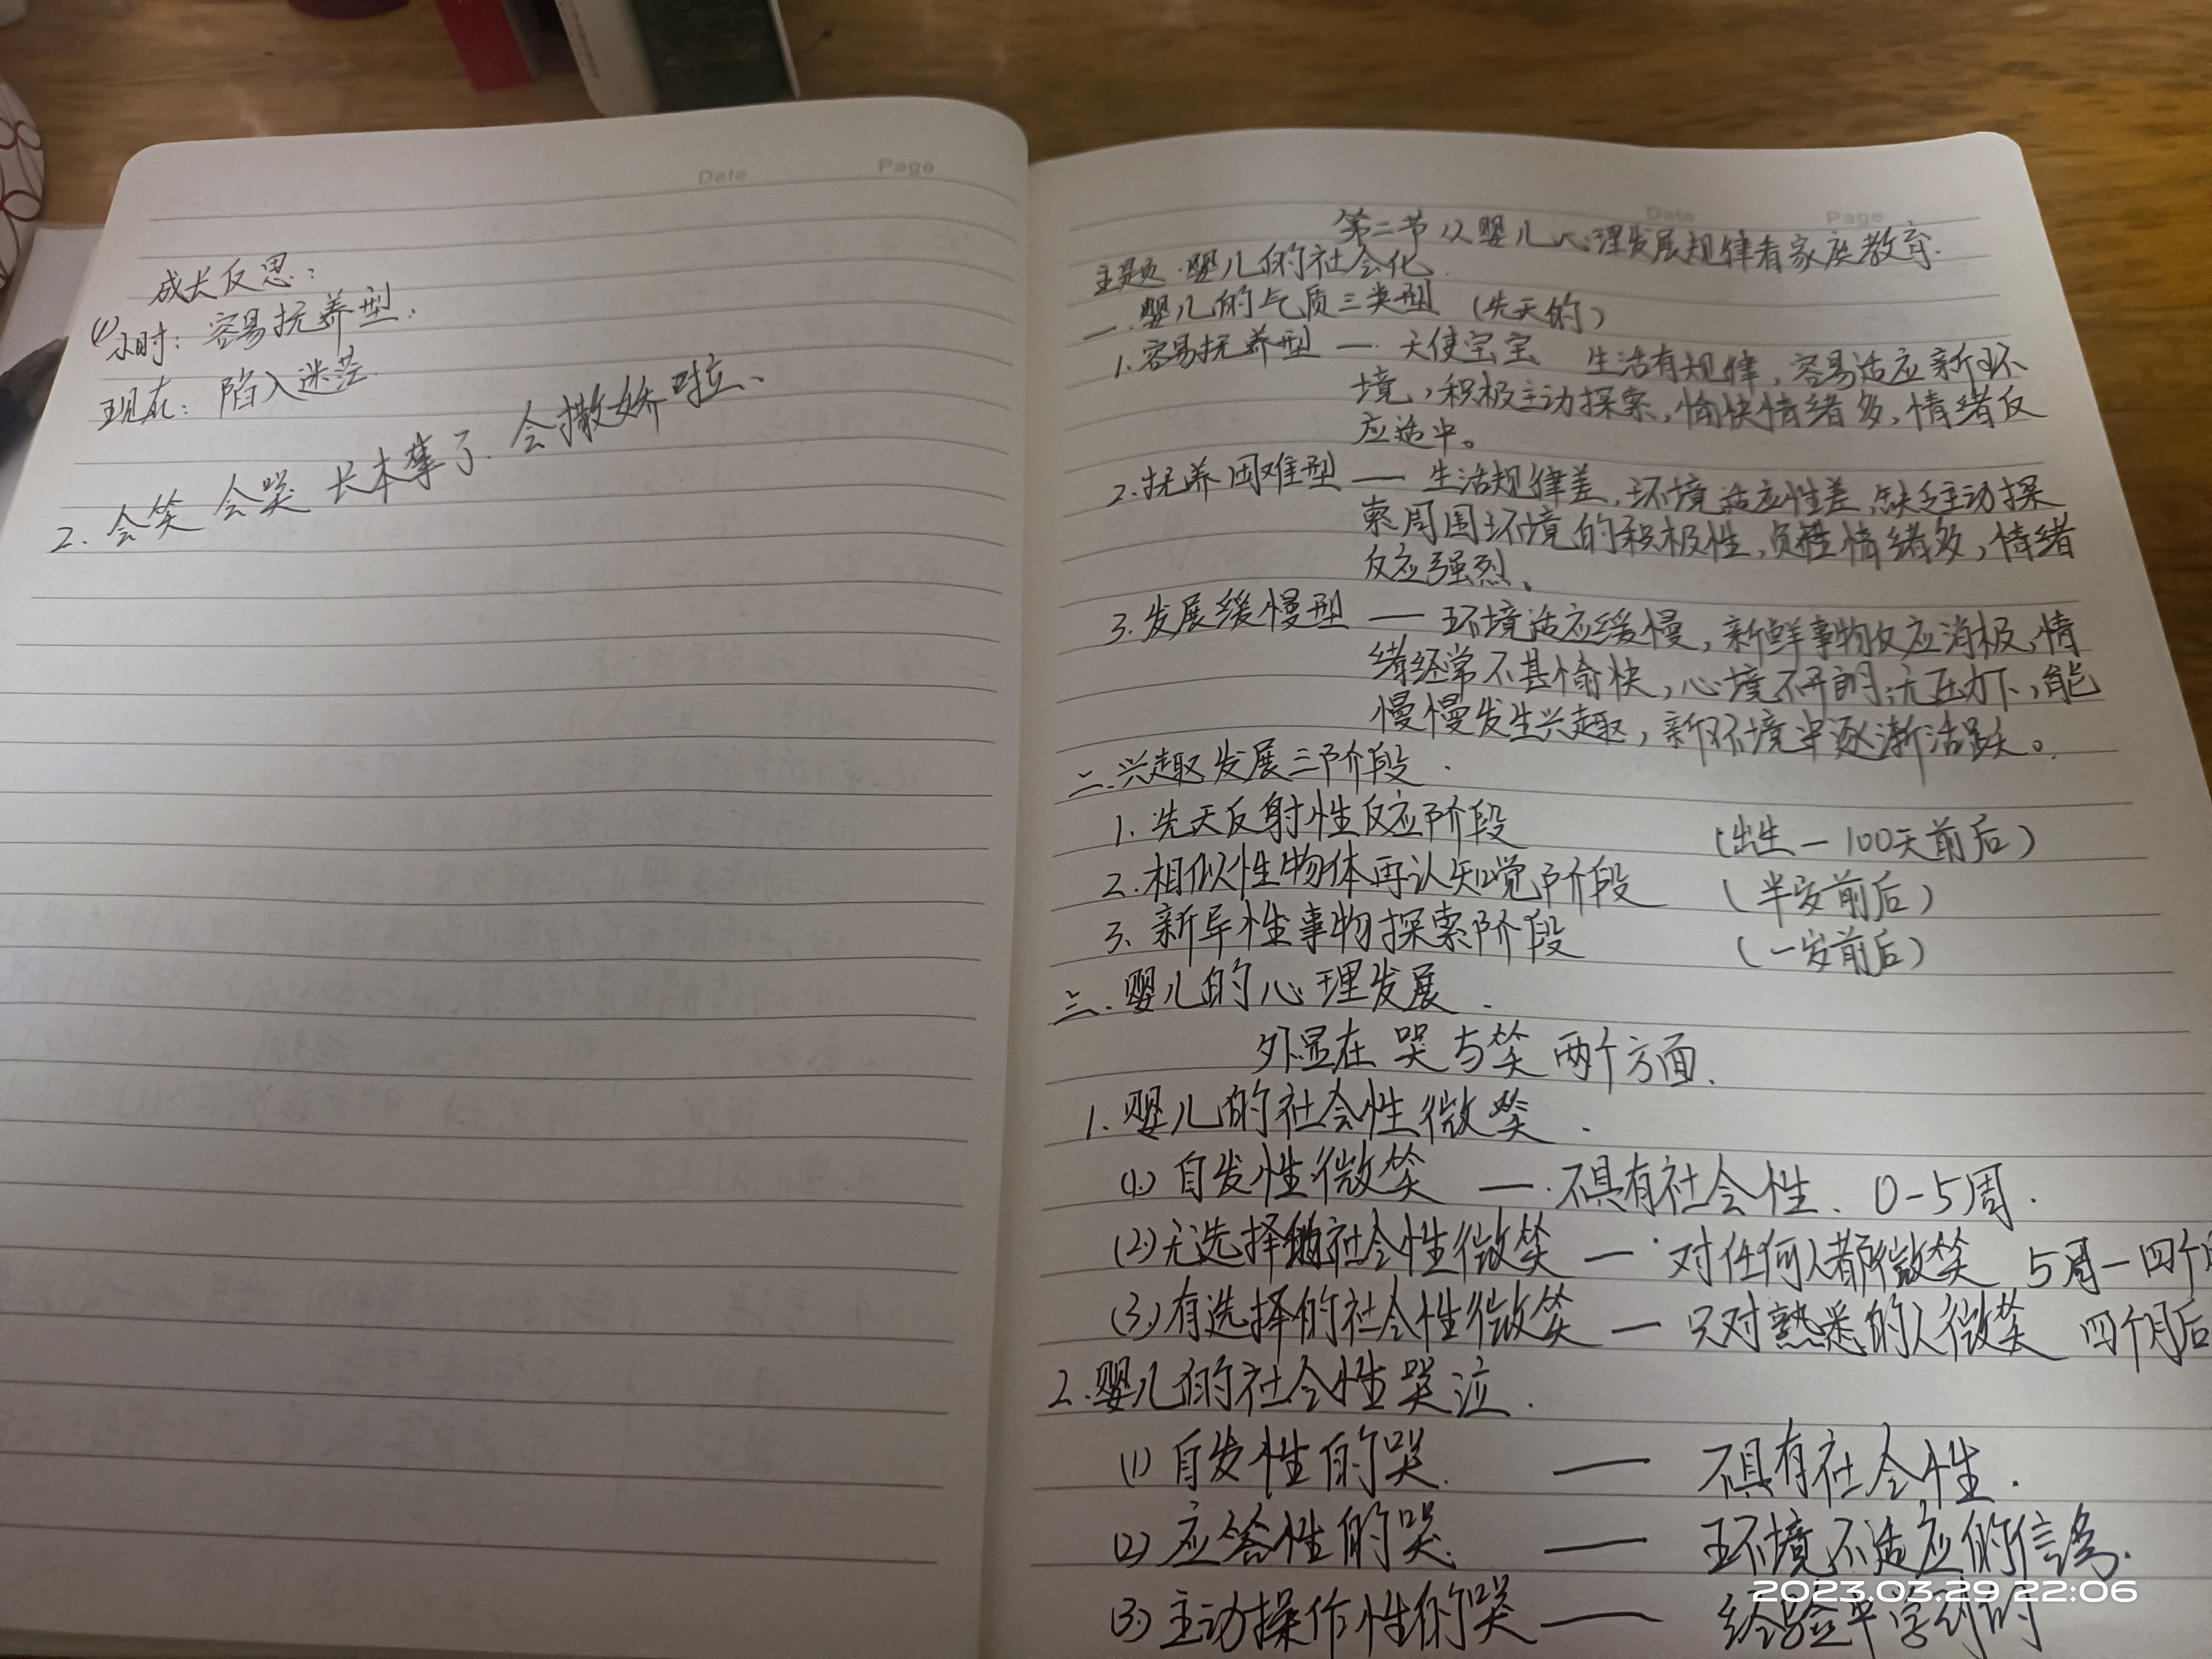 Date Page
成长反思：
(1) 小时：容易抚养型.
现在：陷入迷茫.
2. 会笑 会哭 长本事了. 会撒娇啦、
Date Page
第二节 从婴儿心理发展规律看家庭教育.
主题·婴儿的社会化.
一.婴儿的气质三类型 (先天的)
1.容易抚养型 — 天使宝宝 生活有规律，容易适应新环
境，积极主动探索，愉快情绪多，情绪反
应适中。
2.抚养困难型 — 生活规律差，环境适应性差，缺乏主动探
索周围环境的积极性，负性情绪多，情绪
反应强烈。
3.发展缓慢型 — 环境适应缓慢，新鲜事物反应消极，情
绪经常不甚愉快，心境不开朗；无压力下，能
慢慢发生兴趣，新环境中逐渐活跃。
二.兴趣发展三阶段.
1.先天反射性反应阶段 (出生—100天前后)
2.相似性物体再认知觉阶段 (半岁前后)
3.新异性事物探索阶段 (一岁前后)
三.婴儿的心理发展.
外显在 哭与笑 两个方面.
1.婴儿的社会性微笑.
(1) 自发性微笑 — 不具有社会性、0-5周.
(2) 无选择的社会性微笑 — 对任何人都微笑 5周—四个
(3) 有选择的社会性微笑 — 只对熟悉的人微笑 四个月后
2.婴儿的社会性哭泣.
(1) 自发性的哭. — 不具有社会性.
(2) 应答性的哭. — 环境不适应的信号.
(3) 主动操作性的哭 — 经验中学到的
2023.03.29 22:06